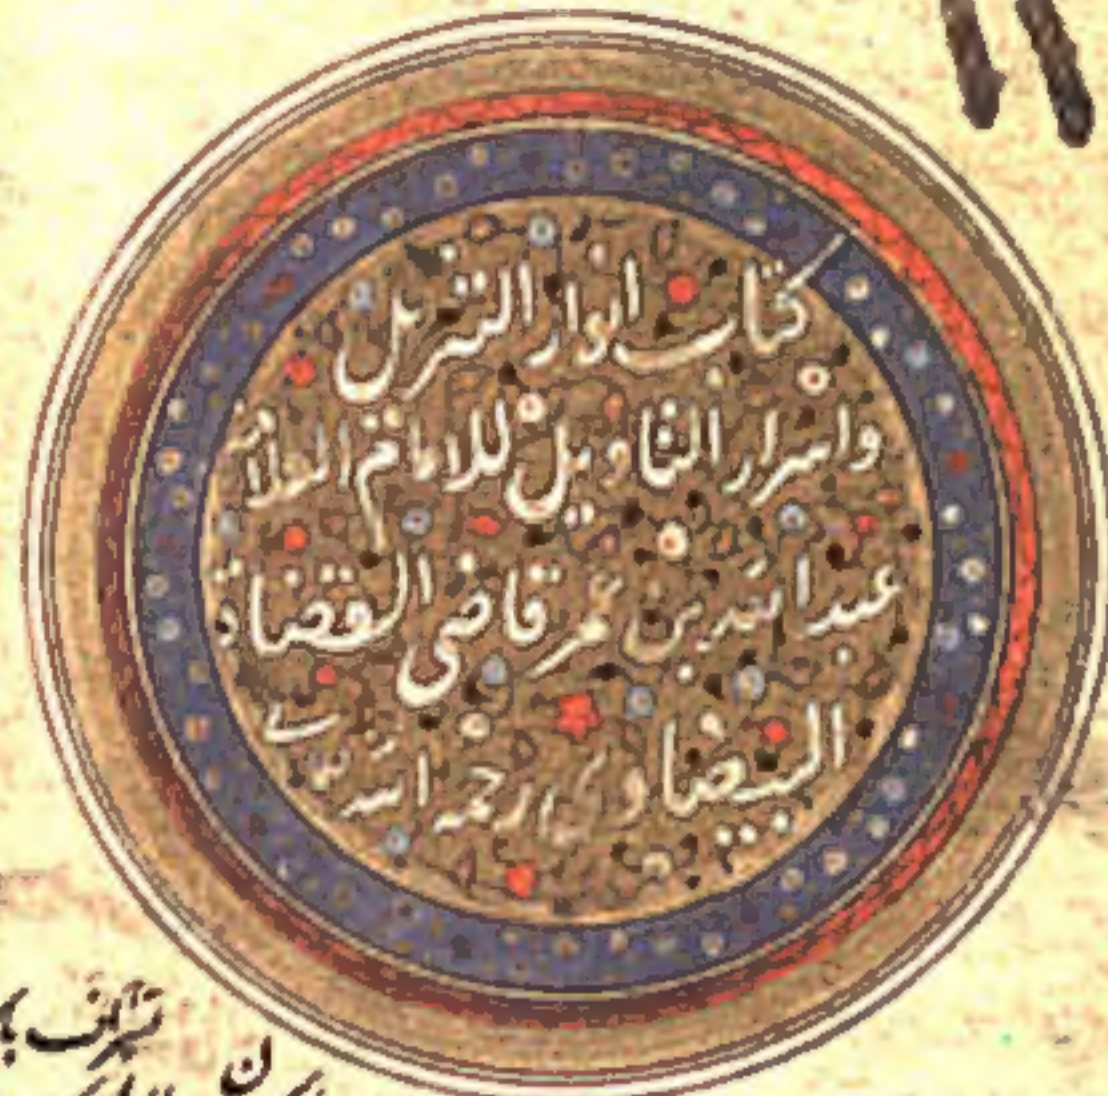 كتاب انوار التنزيل
واسرار التأويل للامام العلامة
عبد الله بن عمر قاضى القضاة
البيضاوي رحمه الله